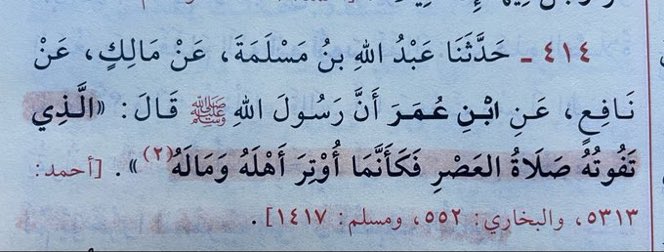 ٤١٤ ـ حَدَّثَنَا عَبْدُ اللهِ بنُ مَسْلَمَةَ، عَنْ مَالِكٍ، عَنْ
نَافِعٍ، عَنِ ابْنِ عُمَرَ أَنَّ رَسُولَ اللهِ ﷺ قَالَ: «الَّذِي
تَفُوتُهُ صَلَاةُ العَصْرِ فَكَأَنَّمَا أُوْتِرَ أَهْلَهُ وَمَالَهُ(٢)». [أحمد:
٥٣١٣، والبخاري: ٥٥٢، ومسلم: ١٤١٧].